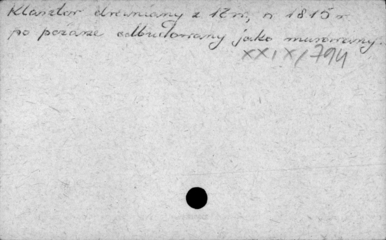 Klasztor drewniany z 17 w., w 1815 r.
po pożarze odbudowany jako murowany.
XXIX/794